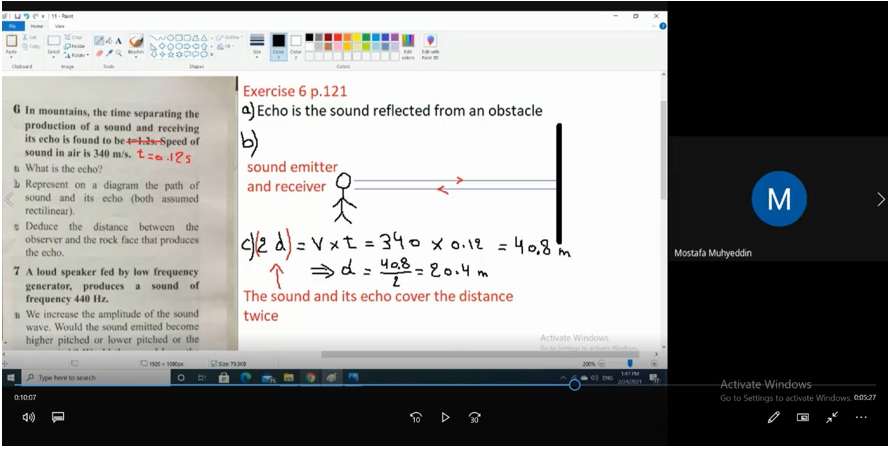 11 - Paint
File Home View
Paste Cut Copy
Select Crop Resize Rotate
Brushes
Outline Fill
Size
Color 1 Color 2
Edit colors
Edit with Paint 3D
Clipboard Image Tools Shapes Colors
6 In mountains, the time separating the
production of a sound and receiving
its echo is found to be t=1.2s. Speed of
sound in air is 340 m/s. t=0.12s
a What is the echo?
b Represent on a diagram the path of
sound and its echo (both assumed
rectilinear).
c Deduce the distance between the
observer and the rock face that produces
the echo.
7 A loud speaker fed by low frequency
generator, produces a sound of
frequency 440 Hz.
a We increase the amplitude of the sound
wave. Would the sound emitted become
higher pitched or lower pitched or the
Exercise 6 p.121
a) Echo is the sound reflected from an obstacle
b)
sound emitter
and receiver
c) (2 d) = V × t = 340 × 0.12 = 40.8 m
⇒ d = 40.8/2 = 20.4 m
The sound and its echo cover the distance
twice
Activate Windows
Go to Settings to activate Windows.
1920 × 1080px
Size: 79.3KB
200%
Type here to search
ENG
1:47 PM
2/24/2021
M
Mostafa Muhyeddin
Activate Windows
Go to Settings to activate Windows.
0:10:07
0:05:27
10
30